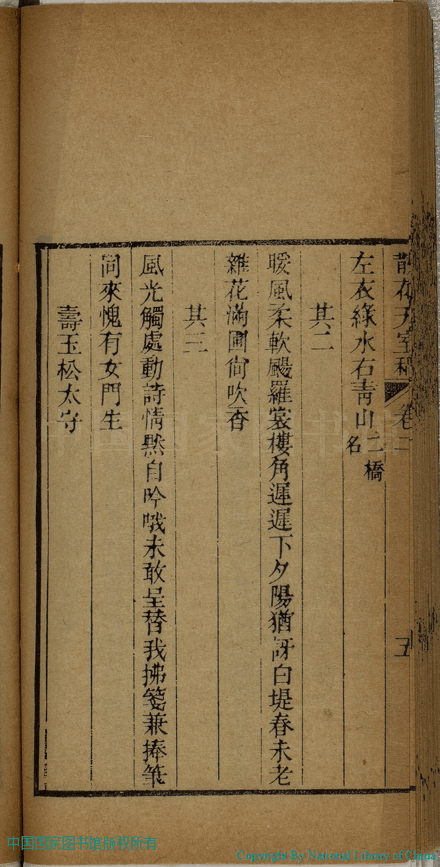 散花天室稿 卷二 五
左衣綠水右青山二橋名
其二
暖風柔軟颺羅裳樓角遲遲下夕陽猶訝白堤春未老
雜花滿圃尙吹香
其三
風光觸處動詩情默自吟哦未敢呈替我拂箋兼捧筆
同來愧有女門生
壽玉松太守
中国国家图书馆版权所有
Copyright By National Library of China